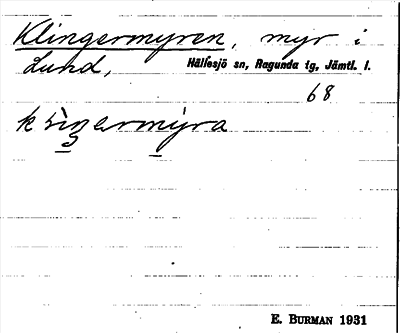 Klingermyren, myr i
Lund, Hällesjö sn, Ragunda tg, Jämtl. l.
68
E. BURMAN 1931